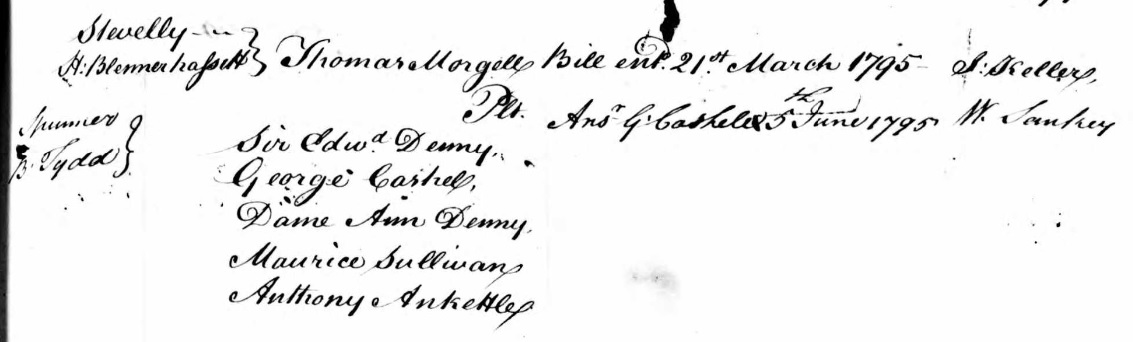 Stevelly
H: Blennerhassett } Thomas Morgell Bill ent. 21st March 1795 S: Keller
Plt. Ansr G: Cashel 5th June 1795 W. Sankey
Spunner
B. Tydd }
Sir Edwd Denny,
George Cashel,
Dame Ann Denny,
Maurice Sullivan
Anthony Ankettle